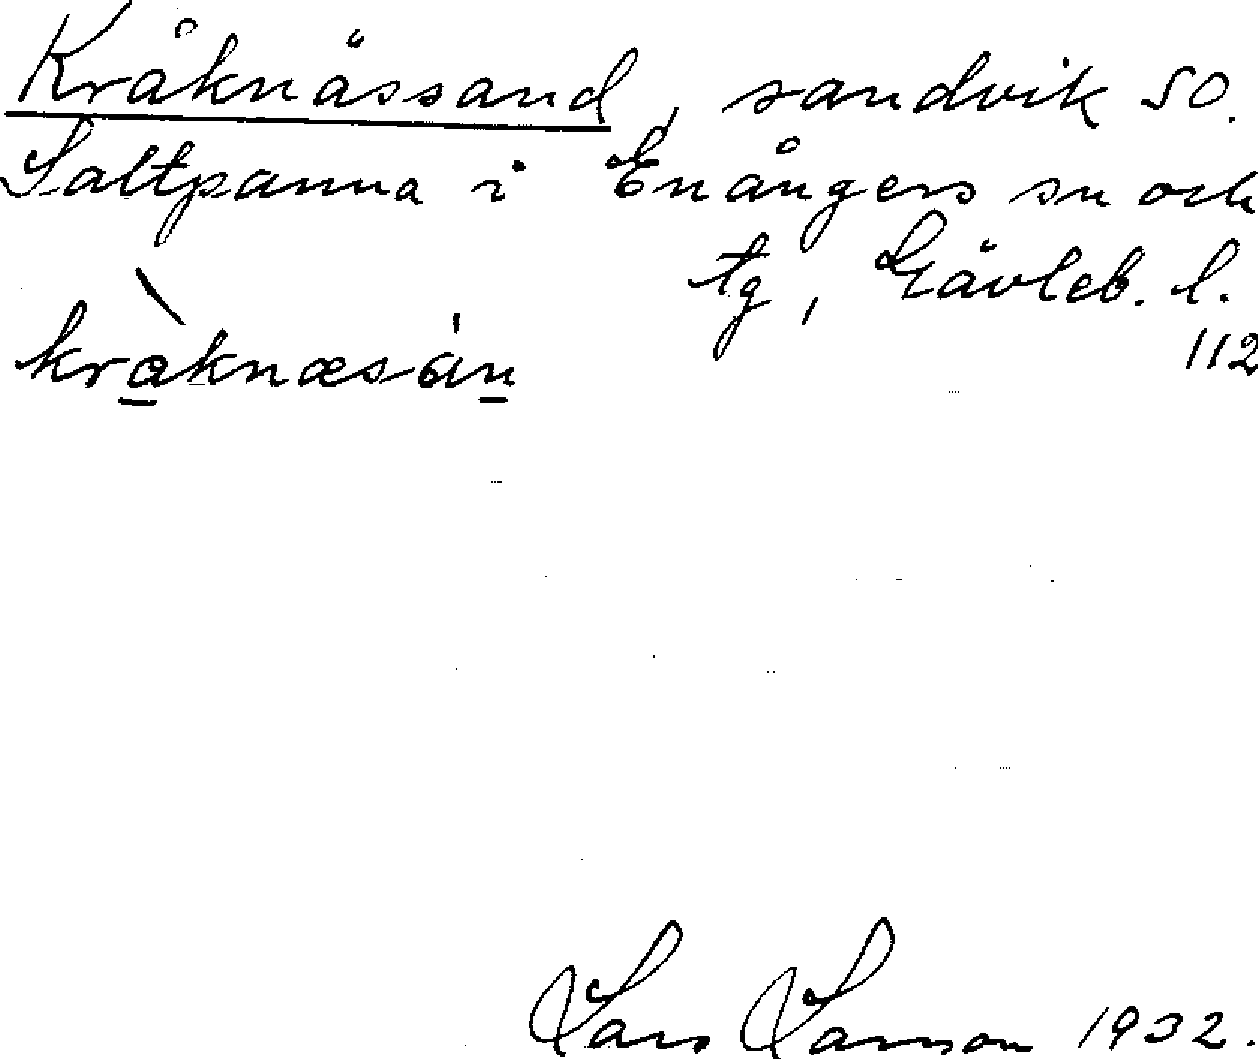 Kråknässand, sandvik SO.
Saltpanna i Enångers sn och
tg, Gävleb. l.
112
kràknæsán
Lars Larsson 1932.